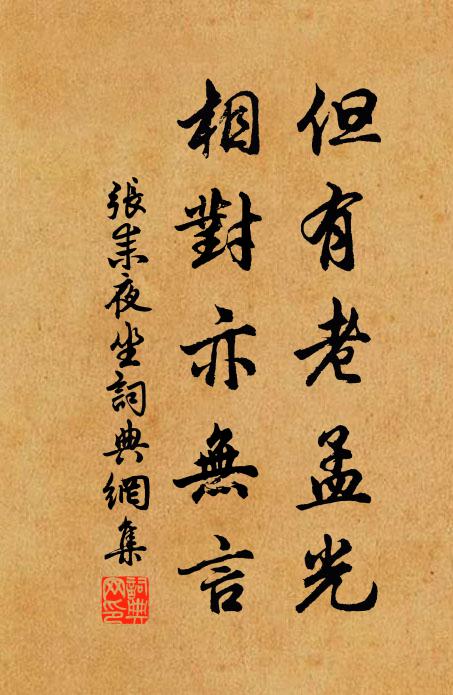 但有老孟光
相對亦無言
張耒夜坐詞典網集
詞典
网印